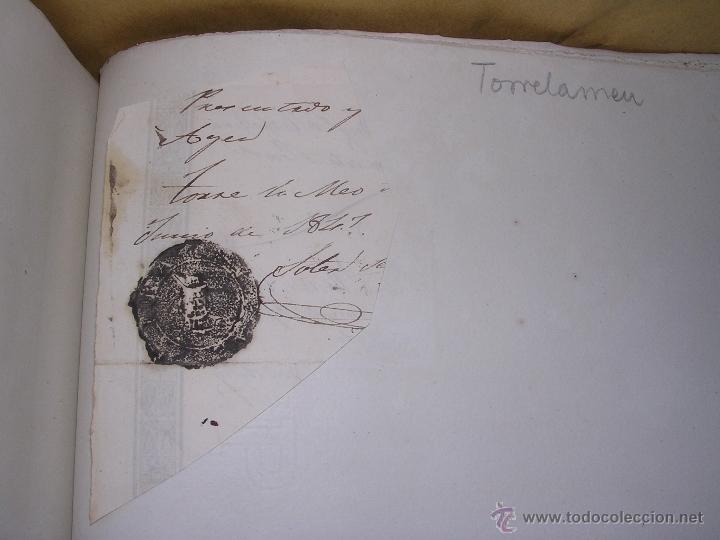 Torrelameu
Presentado y
Ayen
torre la Meo
Junio de 1847.
Soler
www.todocoleccion.net